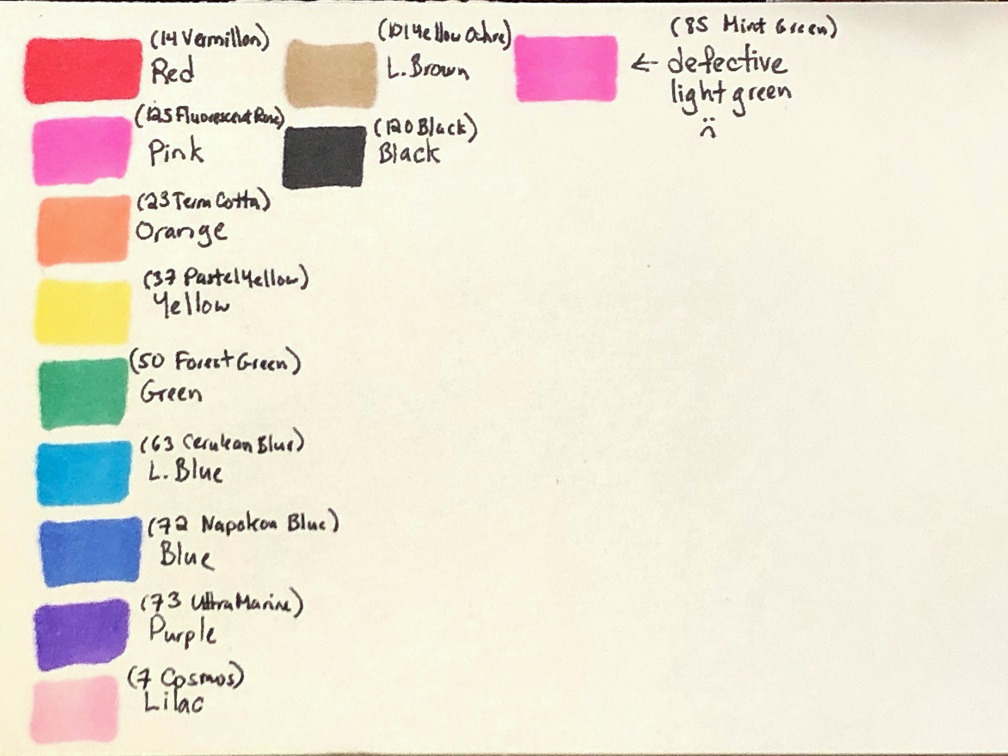 (14 Vermillon)
Red
(125 Fluorescent Rose)
Pink
(23 Terra Cotta)
Orange
(37 Pastel Yellow)
Yellow
(50 Forest Green)
Green
(63 Cerulean Blue)
L. Blue
(72 Napoleon Blue)
Blue
(73 UltraMarine)
Purple
(7 Cosmos)
Lilac
(101 Yellow Ochre)
L. Brown
(120 Black)
Black
(85 Mint Green)
← defective
light green